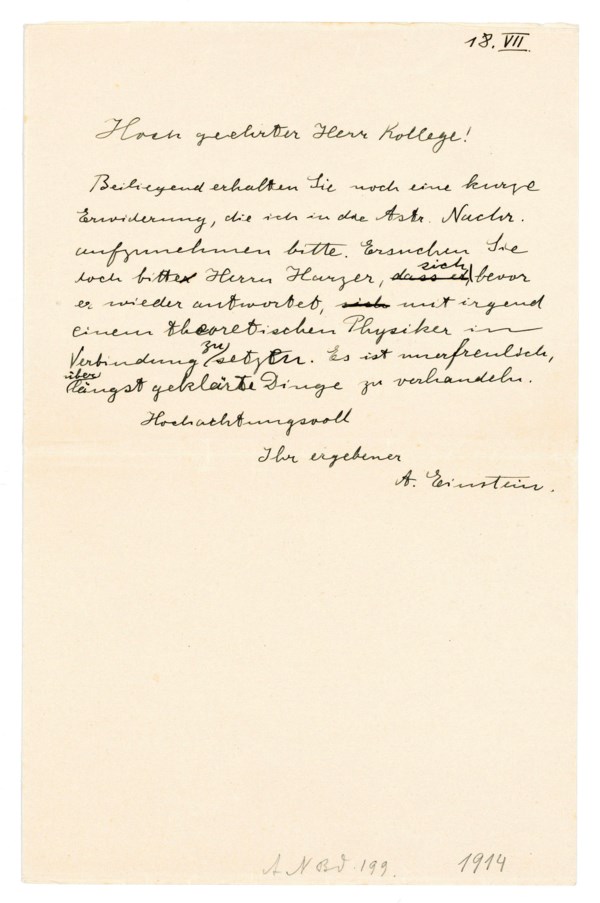 18. VII.
Hoch geehrter Herr Kollege!
Beiliegend erhalten Sie noch eine kurze
Erwiderung, die ich in die Astr. Nachr.
aufzunehmen bitte. Ersuchen Sie
doch bitte Herrn Harzer, dass er sich bevor
er wieder antwortet, sich mit irgend
einem theoretischen Physiker in
Verbindung zu setzen. Es ist unerfreulich,
über längst geklärte Dinge zu verhandeln.
Hochachtungsvoll
Ihr ergebener
A. Einstein.
A N Bd. 199. 1914